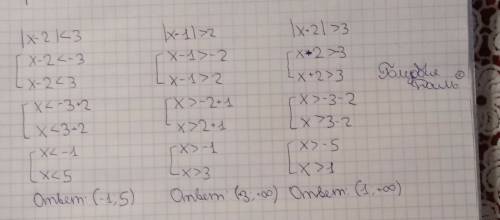 |x-2|<3
[x-2<-3
x-2<3
[x<-3+2
x<3+2
[x<-1
x<5
Ответ: (-1,5)
|x-1|>2
[x-1>-2
x-1>2
[x>-2+1
x>2+1
[x>-1
x>3
Ответ: (3,+∞)
|x-2|>3
[x+2>3
x+2>3
[x>-3-2
x>3-2
[x>-5
x>1
Ответ: (1,+∞)